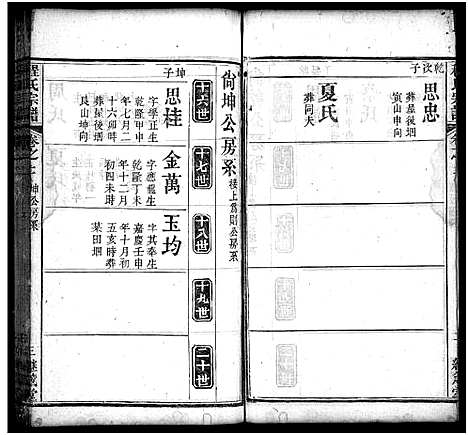 乾汝子
思忠
葬屋後垇
寅山申向
夏氏
葬同夫
尙坤公房系
接上爲則公房系
十六世
十七世
十八世
十九世
二十世
坤子
思桂
字學正生
乾隆甲申
年七月二
十六卯時
葬屋後垇
艮山坤向
金萬
字應龍生
乾隆丁未
年十二月
初四未時
玉均
字其奉生
嘉慶壬申
年十月初
五亥時葬
菜田垇
程氏宗譜
坤公房系
三